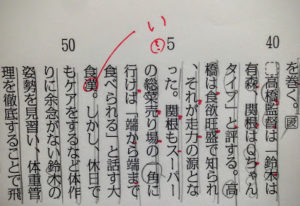 40
高橋監督は「鈴木は
有森、関根はQちゃん
タイプ」と評する。高
橋は食欲旺盛で知られ
、それが走力の源とな
った。関根もスーパー
5
の総菜売り場の一角に
い
行けば「端から端まで
食べられる」と話す大
食漢。しかし、休日で
もケアをするなど体作
50
りに余念がない鈴木の
姿勢を見習い、体重管
理を徹底することで飛